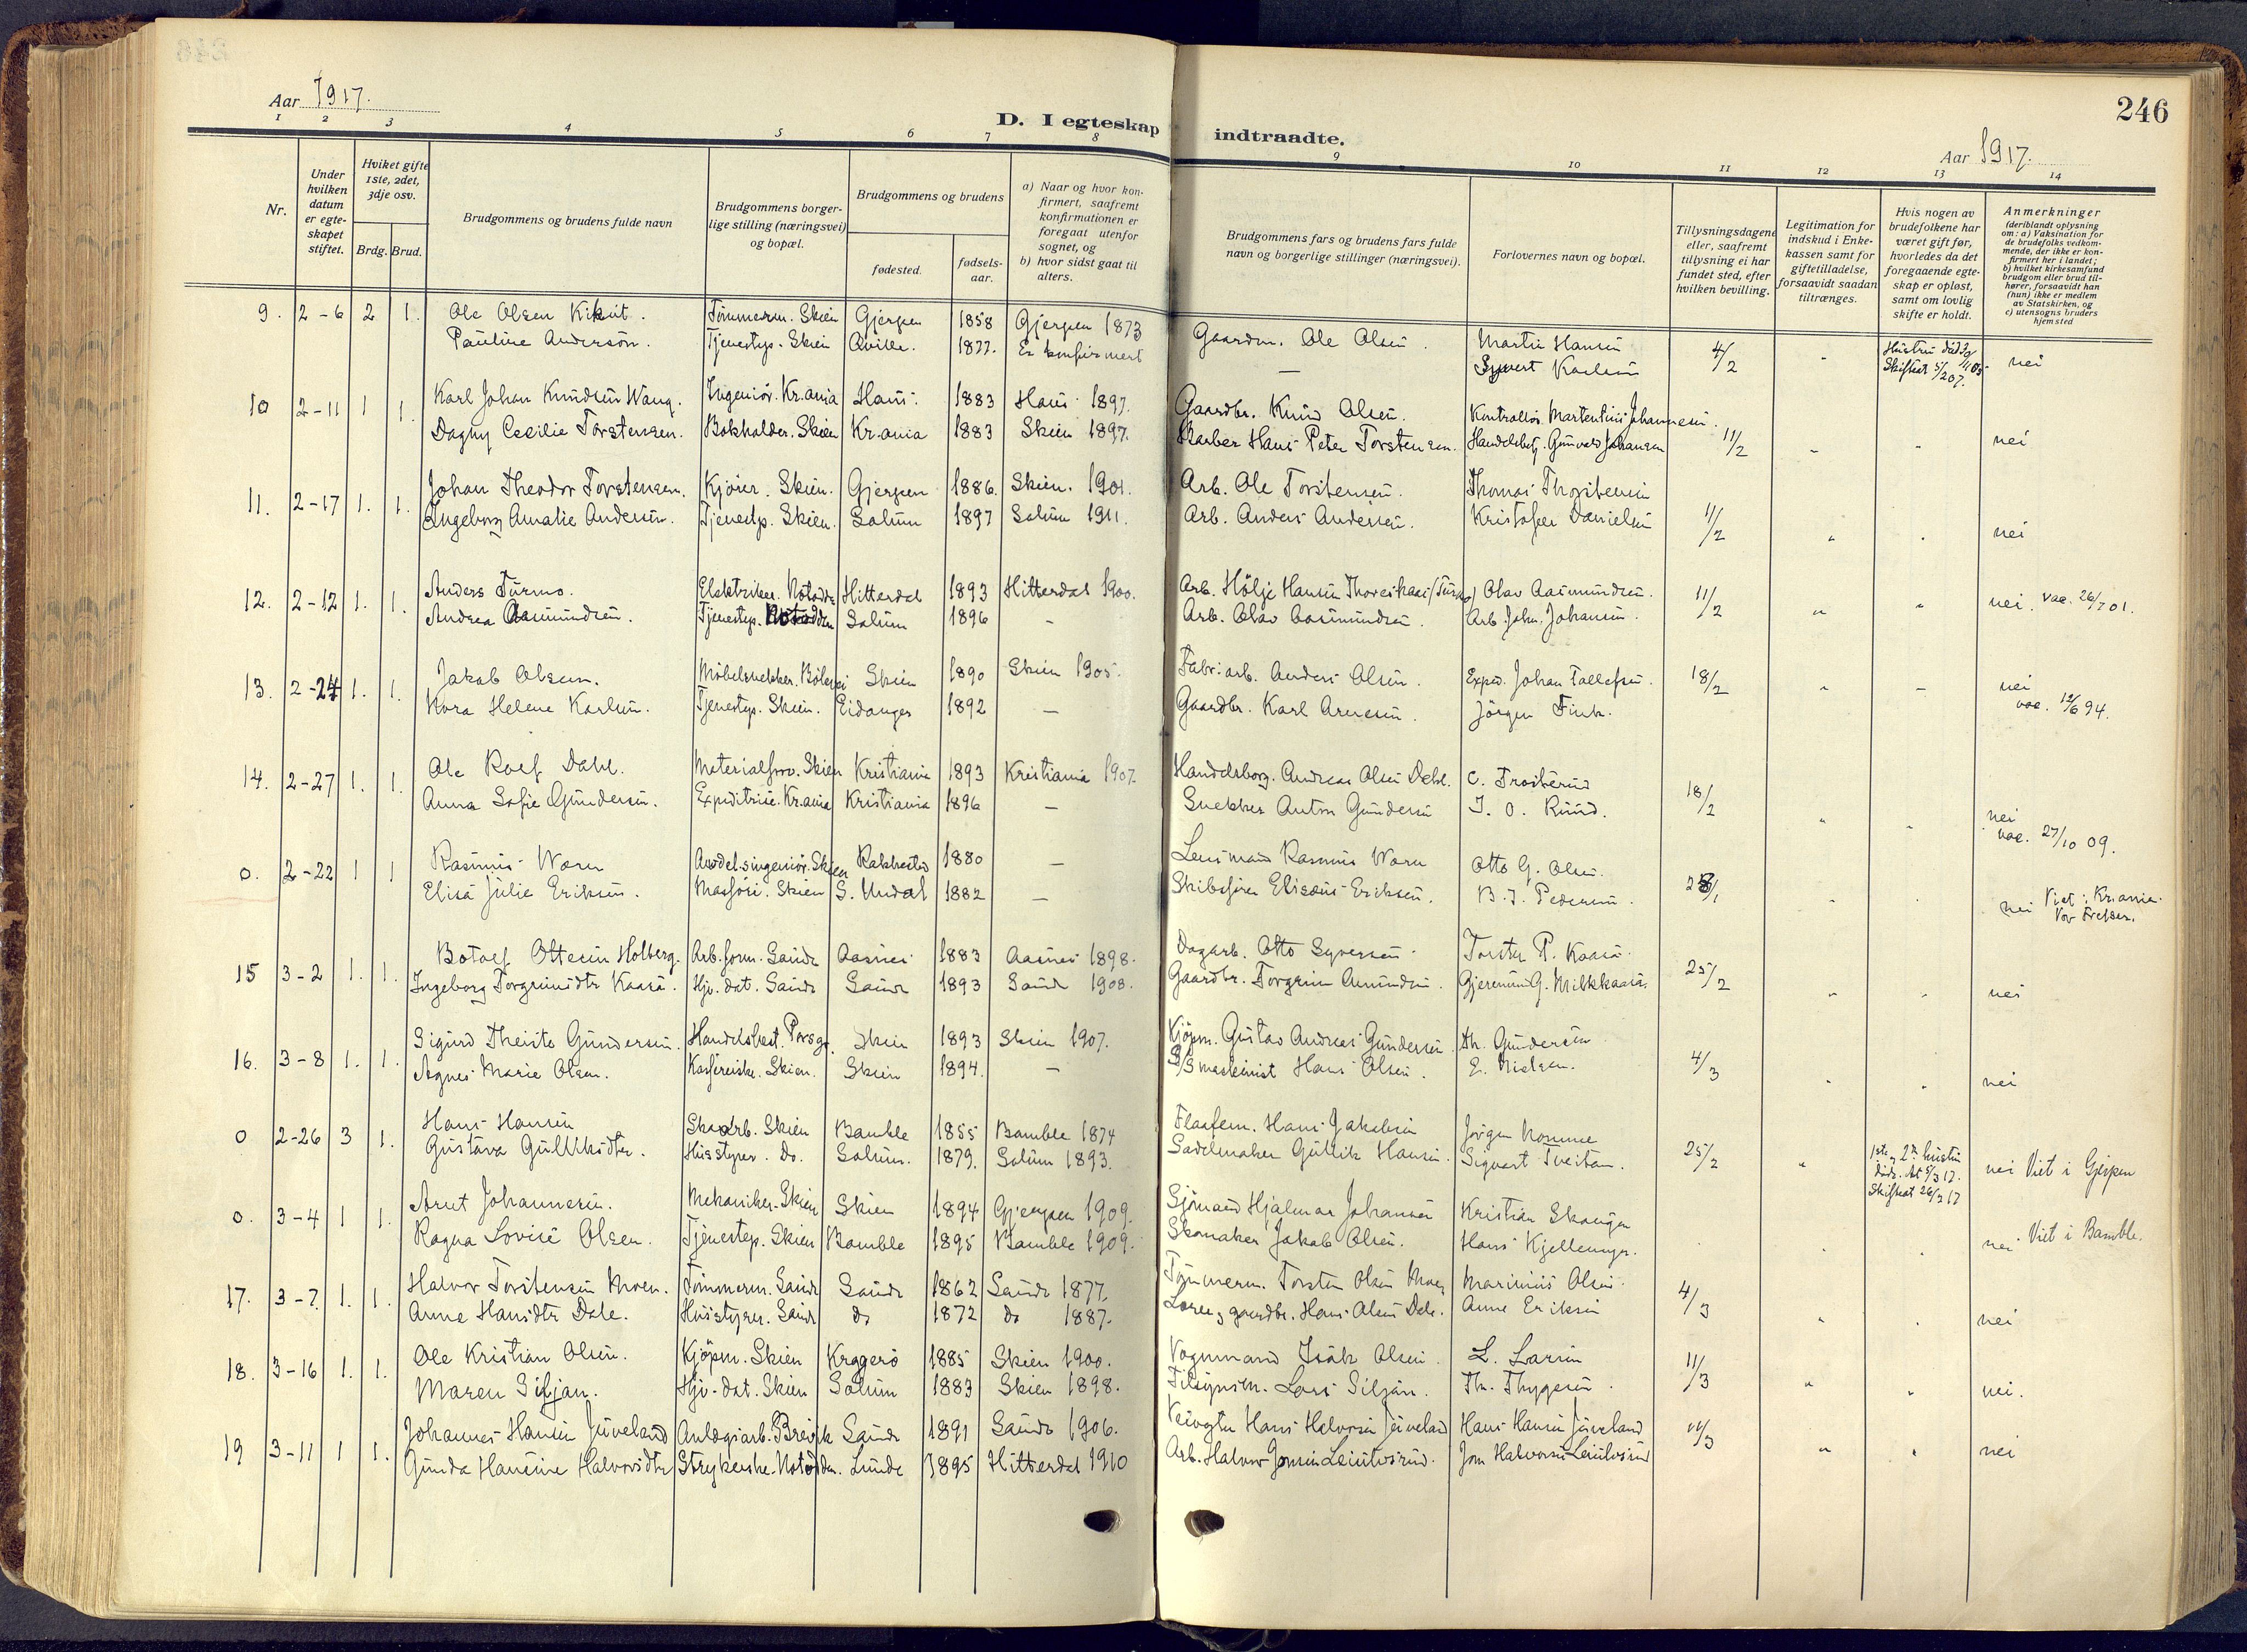 Aar 1917.
D. I egteskap indtraadte.
246
Aar 1917.
1 2 3 4 5 6 7 8 9 10 11 12 13 14
Nr.
Under hvilken datum er egteskapet stiftet.
Hvilket gifte 1ste, 2det, 3dje osv.
Brdg. Brud.
Brudgommens og brudens fulde navn
Brudgommens borgerlige stilling (næringsvei) og bopæl.
Brudgommens og brudens
fødested.
fødselsaar.
a) Naar og hvor konfirmert, saafremt konfirmationen er foregaat utenfor sognet, og
b) hvor sidst gaat til alters.
Brudgommens fars og brudens fars fulde navn og borgerlige stillinger (næringsvei).
Forlovernes navn og bopæl.
Tillysningsdagene eller, saafremt tillysning ei har fundet sted, efter hvilken bevilling.
Legitimation for indskud i Enkekassen samt for giftetilladelse, forsaavidt saadan tiltrænges.
Hvis nogen av brudefolkene har været gift før, hvorledes da det foregaaende egteskap er opløst, samt om lovlig skifte er holdt.
Anmerkninger (deriblandt oplysning om: a) Vaksination for de brudefolks vedkommende, der ikke er konfirmert her i landet; b) hvilket kirkesamfund brudgom eller brud tilhører, forsaavidt han (hun) ikke er medlem av Statskirken, og c) utensogns bruders hjemsted
9. 2-6 2 1. Ole Olsen Kikut. Tømmerm. Skien Gjerpen 1858 Gjerpen 1873 Gaardm. Ole Olsen. Martin Hansen 4/2 " nei
Pauline Anderson. Tjenestep. Skien 1877. Er konfirmert — Syvert Karlsen
10 2-11 1 1. Karl Johan Knudsen Wang. Ingeniør. Kr.ania Haus. 1883 Haus 1897. Gaardbr. Knud Olsen. Kontrollør Martentius Johannesen. 11/2 " " nei
Dagny Cecilie Torstensen. Bokholder. Skien Kr.ania 1883 Skien 1897. Barber Hans Peter Torstensen. Handelsbetj. Gunvald Johansen
11. 2-17 1. 1. Johan Theodor Torstensen. Kjører. Skien. Gjerpen 1886. Skien. 1901. Arb. Ole Torstensen. Thomas Thorstensen 11/2 " " nei
Ingeborg Amalie Andersen. Tjenestp. Skien. Solum 1897 Solum 1911. Arb. Anders Andersen. Kristofer Danielsen
12. 2-12 1. 1. Anders Turmo. Elektriker. Notodden Hitterdal 1893 Hitterdal 1900. Arb. Hølje Hansen Olav Aasmundsen. 11/2 " " nei. vac. 26/7 01.
Andrea Aasmundsen. Tjenestep. Notodden Solum 1896 - Arb. Olav Aasmundsen. Arb. Johs. Johansen.
13. 2-24 1. 1. Jakob Olsen. Møbelsnekker. Bølevei Skien 1890 Skien 1905. Fabr.arb. Anders Olsen. Exped. Johan Tollefsen. 18/2 " - nei
Nora Helene Karlsen. Tjenestep. Skien. Eidanger 1892 — Gaardbr. Karl Arnesen. Jörgen Fink. vac. 12/6 94.
14. 2-27 1. 1. Ole Rolf Dahl. Materialforv. Skien Kristiania 1893 Kristiania 1907. Handelsborg. Andreas Olsen Dahl. C. Trosterud 18/2 " " nei
Anna Sofie Gundersen. Expeditrice. Kr.ania Kristiania 1896 — Snekker Anton Gundersen J. O. Ruud. vac. 27/10 09.
0. 2-22 1 1 Rasmus Warn Avdelsingeniør. Skien Rakkestad 1880 — Lensmand Rasmus Warn Otto G. Olsen.
Elisa Julie Eriksen. Massøse. Skien S. Undal 1882 — Skibsfører Elisæus Eriksen. B. J. Pedersen. 28/1 " . nei Viet i Kr.ania. Vor Frelser.
15 3-2 1. 1. Botolf Ottesen Holberg. Arb.form. Sande Aasnes 1883 Aasnes 1898. Dagarb. Otto Syversen. Torsten P. Kaasa. 25/2 " " nei
Ingeborg Torgrimsdtr Kaasa. Hjv. dat. Sande Sande 1893 Sande 1908. Gaardbr. Torgrim Amundsen. Gjermund G. Mælkkaasa.
16. 3-8 1. 1. Sigurd Theiste Gundersen. Handelsbest. Porsgr. Skien 1893 Skien 1907. Kjøpm. Gustav Andreas Gundersen. Th. Gundersen 4/3 " " nei
Agnes Marie Olsen. Kassererske. Skien. Skien 1894. — S/S maskinist Hans Olsen. E. Nielsen.
0 2-26 3 1. Hans Hansen Skoarb. Skien Bamble 1855 Bamble 1874 Hans Jakobsen Jørgen Nomme 25/2 " 1ste og 2den hustru døde. At 5/3 12. Skifteat 26/2 17 nei Viet i Gjerpen
Gustava Gulliksdtr. Husstyrer. Do. Solum. 1879. Solum 1893. Sadelmaker Gullik Hansen. Sigvart Tveitan.
0. 3-4 1 1. Arnt Johannesen. Mekaniker. Skien Skien 1894 Gjerpen 1909. Sjømand Hjalmar Johansen Kristian Skaugen . nei Viet i Bamble.
Ragna Lovise Olsen. Tjenestep. Skien Bamble 1895 Bamble 1909. Skomaker Jakob Olsen. Hans Kjellemyr.
17. 3-7 1. 1. Halvor Torstensen Moen. Tømmerm. Sande Sande 1862 Sande 1877. Tømmerm. Torsten Olsen Moen Marinius Olsen. 4/3 " . nei
Anne Hansdtr Dale. Husstyrer. Sande do 1872 do 1887. gaardbr. Hans Olsen Dale. Anne Eriksen
18. 3-16 1. 1. Ole Kristian Olsen. Kjöpm. Skien Kragerö 1885 Skien 1900. Vognmand Isak Olsen. L. Larsen 11/3 " " nei.
Maren Siljan. Hjv. dat. Skien Solum 1883 Skien 1898. Tilsynsm. Lars Siljan. Th. Thygesen.
19 3-11 1 1. Johannes Hansen Juveland Anlægsarb. Brevik Sande 1891 Sande 1906. Veivogter Hans Halvorsen Juveland Hans Hansen Juveland " " nei
Gunda Hansine Halvorsdtr Strykerske. Notodden. Lunde 1895 Hitterdal 1910 Arb. Halvor Jonsen Leiulvsrud. Jon Halvorsen Leiulvsrud